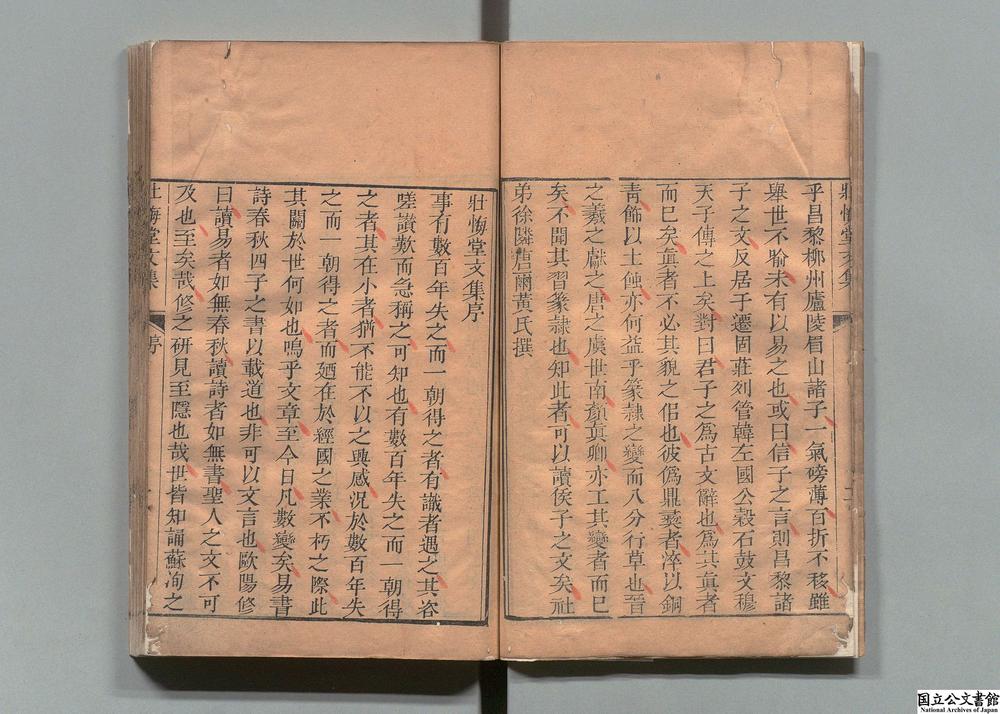 壯悔堂文集
二
乎昌黎柳州廬陵眉山諸子一氣磅薄百折不移雖
舉世不喻未有以易之也或曰信子之言則昌黎諸
子之文反居于遷固莊列管韓左國公穀石鼓文穆
天子傳之上矣對曰君子之為古文辭也為其眞者
而已矣眞者不必其貌之佀也彼僞鼎彝者淬以銅
靑飾以土蝕亦何益乎篆隸之變而八分行草也晉
之羲之獻之唐之虞世南顏眞卿亦工其變者而巳
矣不聞其習篆隸也知此者可以讀侯子之文矣社
弟徐隣唐爾黃氏撰
壯悔堂文集序
事有數百年失之而一朝得之者有識者遇之其咨
嗟讚歎而急稱之可知也有數百年失之而一朝得
之者其在小者猶不能不以之興感況於數百年失
之而一朝得之者而廼在於經國之業不朽之際此
其關於世何如也嗚乎文章至今日凡數變矣易書
詩春秋四子之書以載道也非可以文言也歐陽修
曰讀易者如無春秋讀詩者如無書聖人之文不可
及也至矣哉修之研見至隱也哉世皆知誦蘇洵之
壯悔堂文集
序
一
国立公文書館
National Archives of Japan